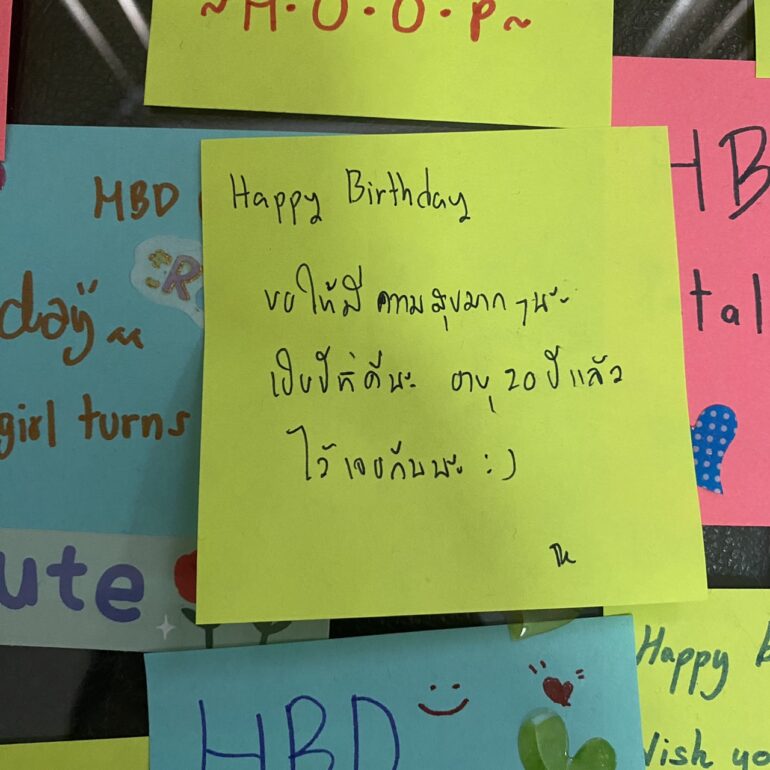 ~M·O·O·P~
HBD
Happy Birthday
ขอให้มีความสุขมาก ๆ นะ
เป็นปีที่ดีนะ อายุ 20 ปีแล้ว
ไว้เจอกันนะ :)
day
girl turns
ute
HB
tal
HBD
Happy B
Wish yo